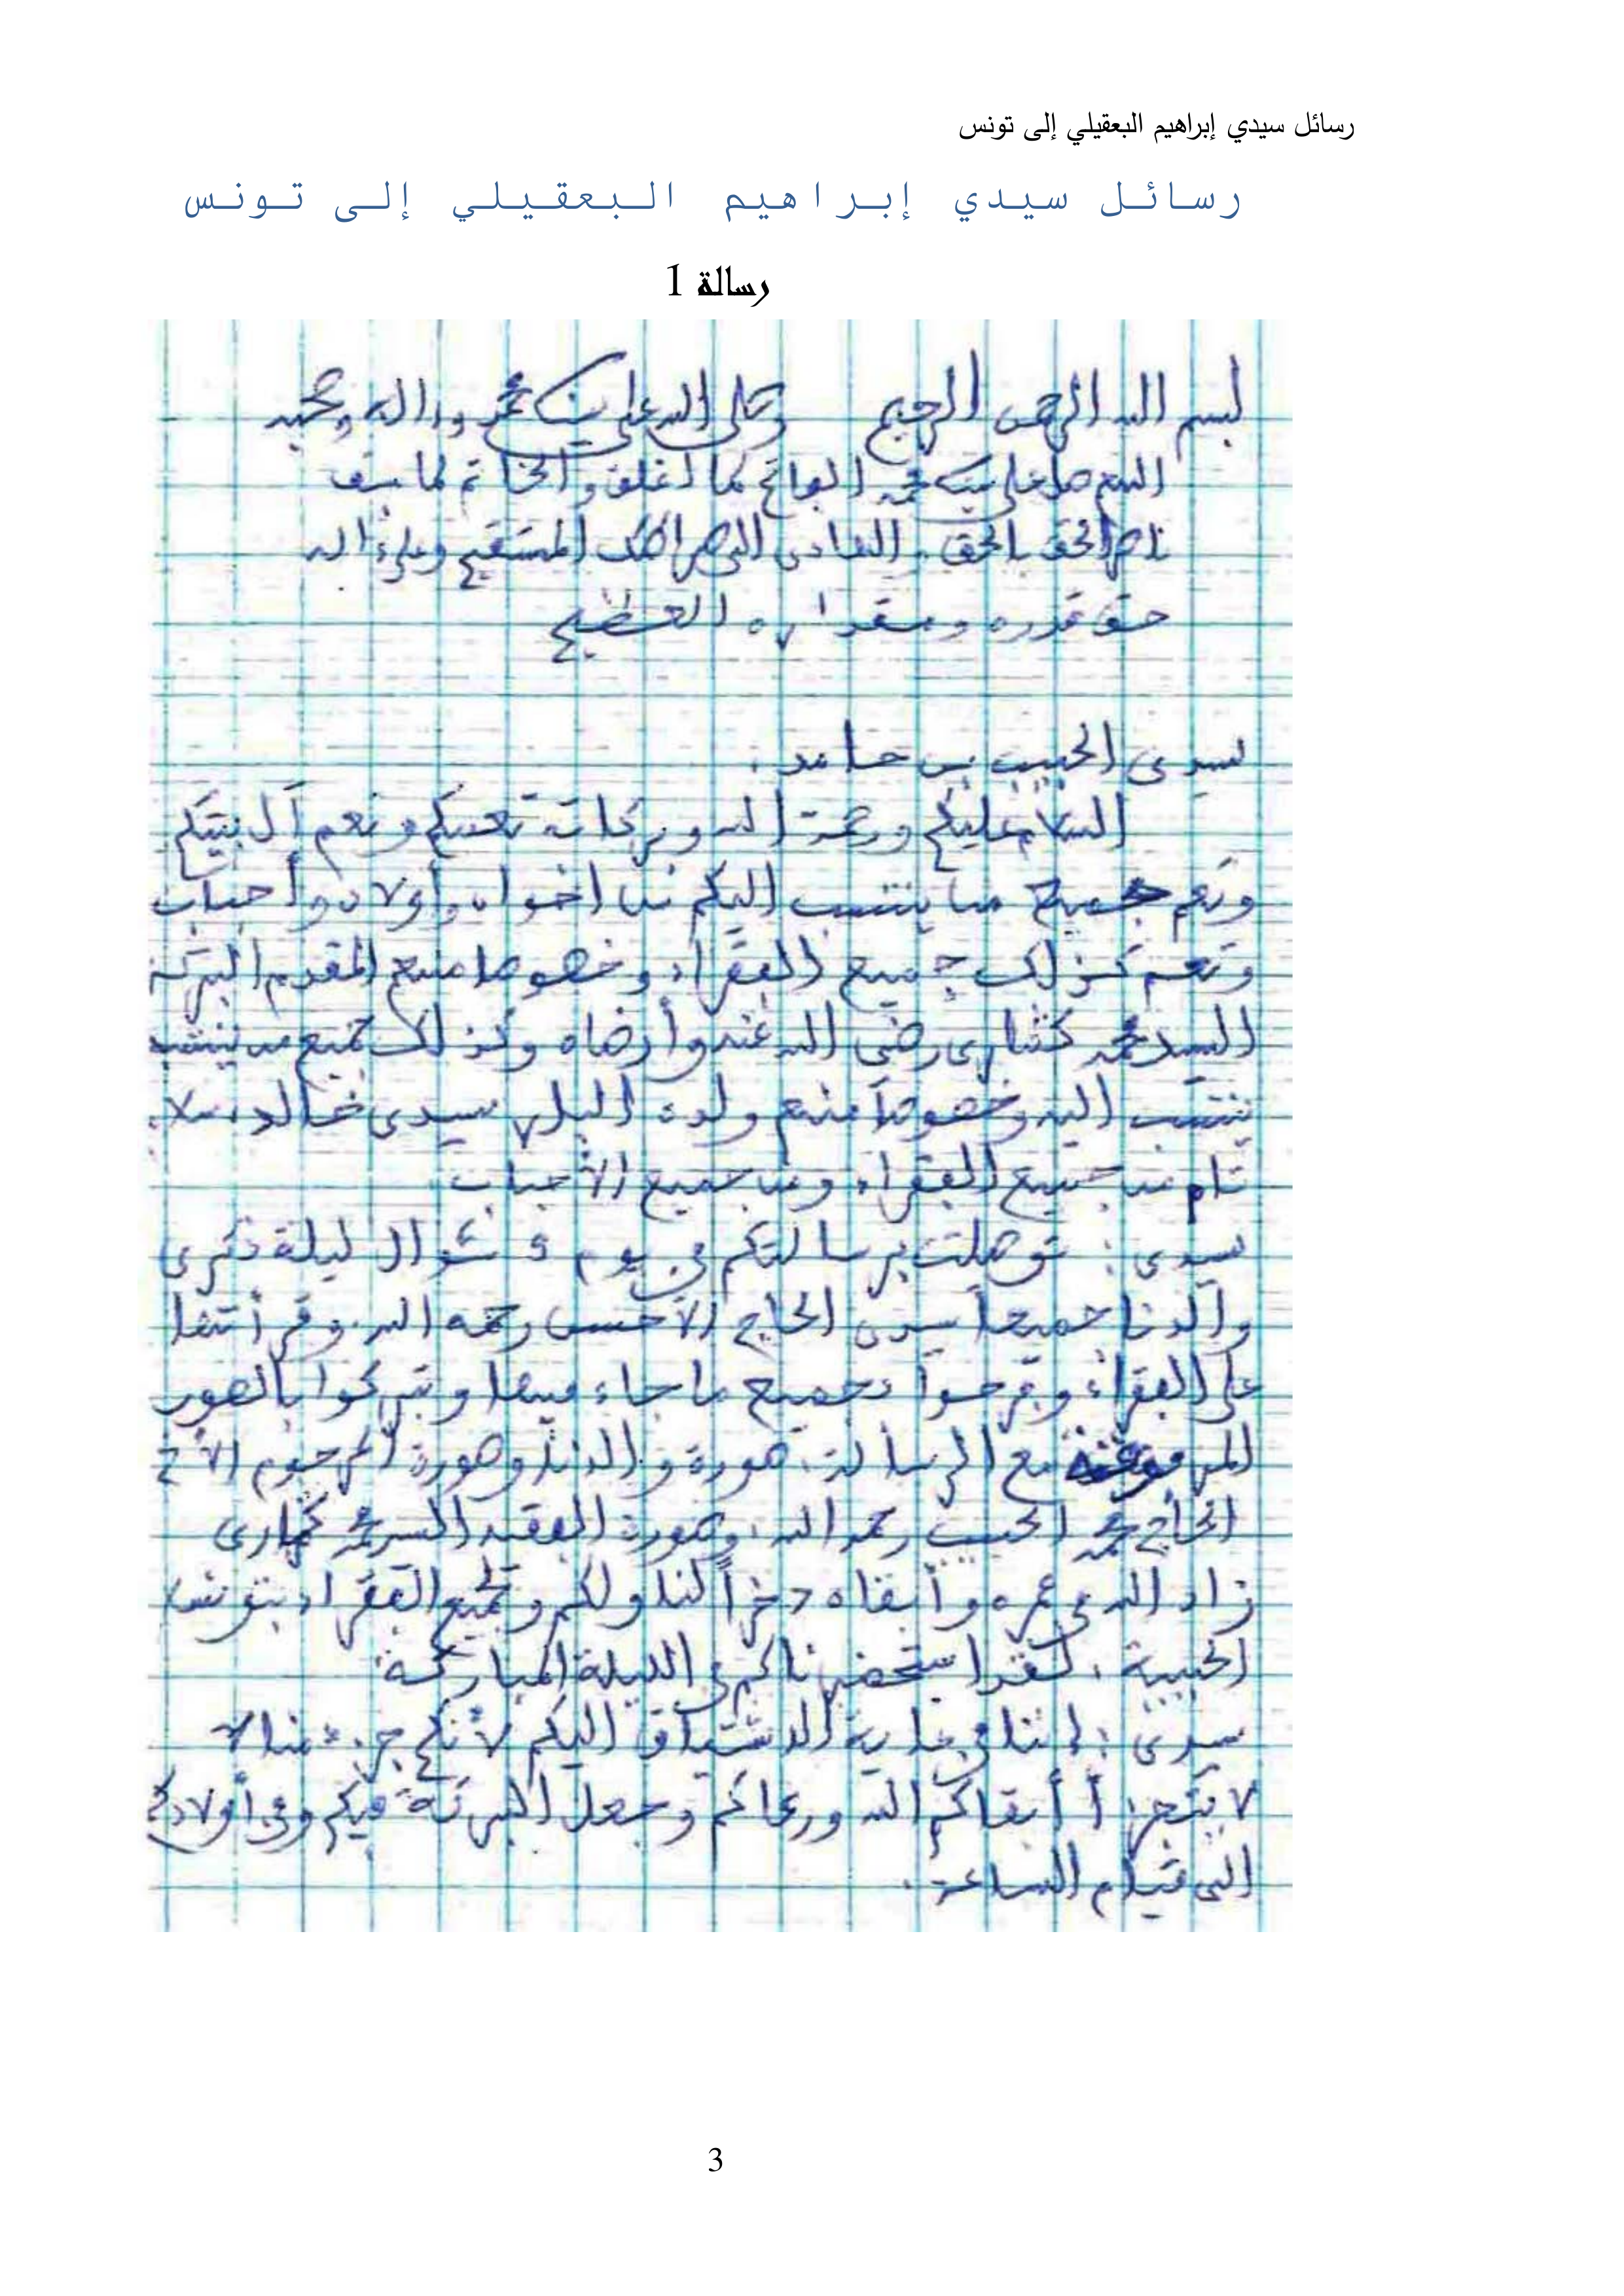 رسائل سيدي إبراهيم البعقيلي إلى تونس
رسائل سيدي إبراهيم البعقيلي إلى تونس
رسالة 1
بسم الله الرحمن الرحيم وصلى الله على سيدنا محمد وءاله وصحبه
اللهم صل على سيدنا محمد الفاتح لما أغلق والخاتم لما سبق
ناصر الحق بالحق والهادى الى صراطك المستقيم وعلى ءاله
حق قدره ومقداره العظيم
سيدى الحبيب بن حامد.
السلام عليكم ورحمة الله وبركاته تعمكم وتعم آل بيتكم
وتعم جميع من ينتسب اليكم من اخوان وأولاد وأحباب
وتعم كذلك جميع الفقراء وخصوصا منهم المقدم البركة
السيد محمد رضي الله عنه وأرضاه وكذلك جميع من ينتسب
ينتسب اليه وخصوصاً منهم ولده البار سيدى خالد، سلام
تام من جميع الفقراء ومن جميع الأحباب
سيدى: توصلت برسالتكم في يوم شوال ليلة ذكرى
والدنا جميعاً سيدى الحاج الأحسن رحمه الله. وقرأتها
على الفقراء وفرحوا بجميع ما جاء فيها وتبركوا بالصور
المرفوقة مع الرسالة. صورة والدنا وصورة المرحوم الأخ
الحاج محمد الحبيب رحمه الله، وصورة الفقيه السيد محمد
زاد الله في عمره وأبقاه ذخراً لنا ولكم ولجميع الفقراء بتونس
الحبيبة. لقد استحضرناكم في الليلة المباركة
سيدى: إننا في غاية الاشتياق اليكم لأنكم جزء منا لا
لا يتجزأ أبقاكم الله ورعاكم وجعل البركة فيكم وفي أولادكم
الى قيام الساعة.
3